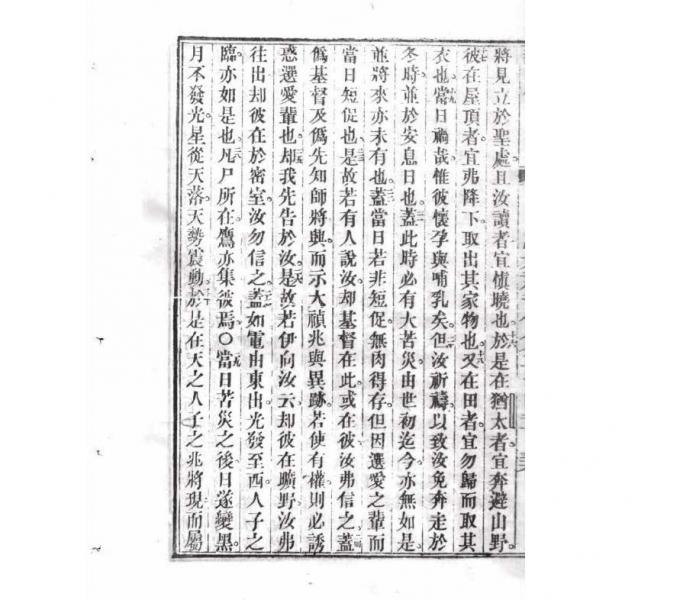 將見立於聖處且汝讀者宜愼曉也於是在猶太者宜奔避山野
彼在屋頂者宜弗降下取出其家物也又在田者宜勿歸而取其
衣也當日禍哉惟彼懷孕與哺乳矣但汝祈禱以致汝免奔走於
冬時並於安息日也蓋此時必有大苦災由世初迄今亦無如是
並將來亦未有也蓋當日若非短促無肉得存但因選愛之輩而
當日短促也是故若有人說汝却基督在此或在彼汝弗信之蓋
僞基督及僞先知師將興而示大禎兆與異跡若使有權則必誘
惑選愛輩也却我先告於汝是故若伊向汝云却彼在曠野汝弗
往出却彼在於密室汝勿信之蓋如電由東出光發至西人子之
臨亦如是也凡尸所在鷹亦集彼焉○當日苦災之後日遂變黑
月不發光星從天落天勢震動於是在天之人子之兆將現而屬